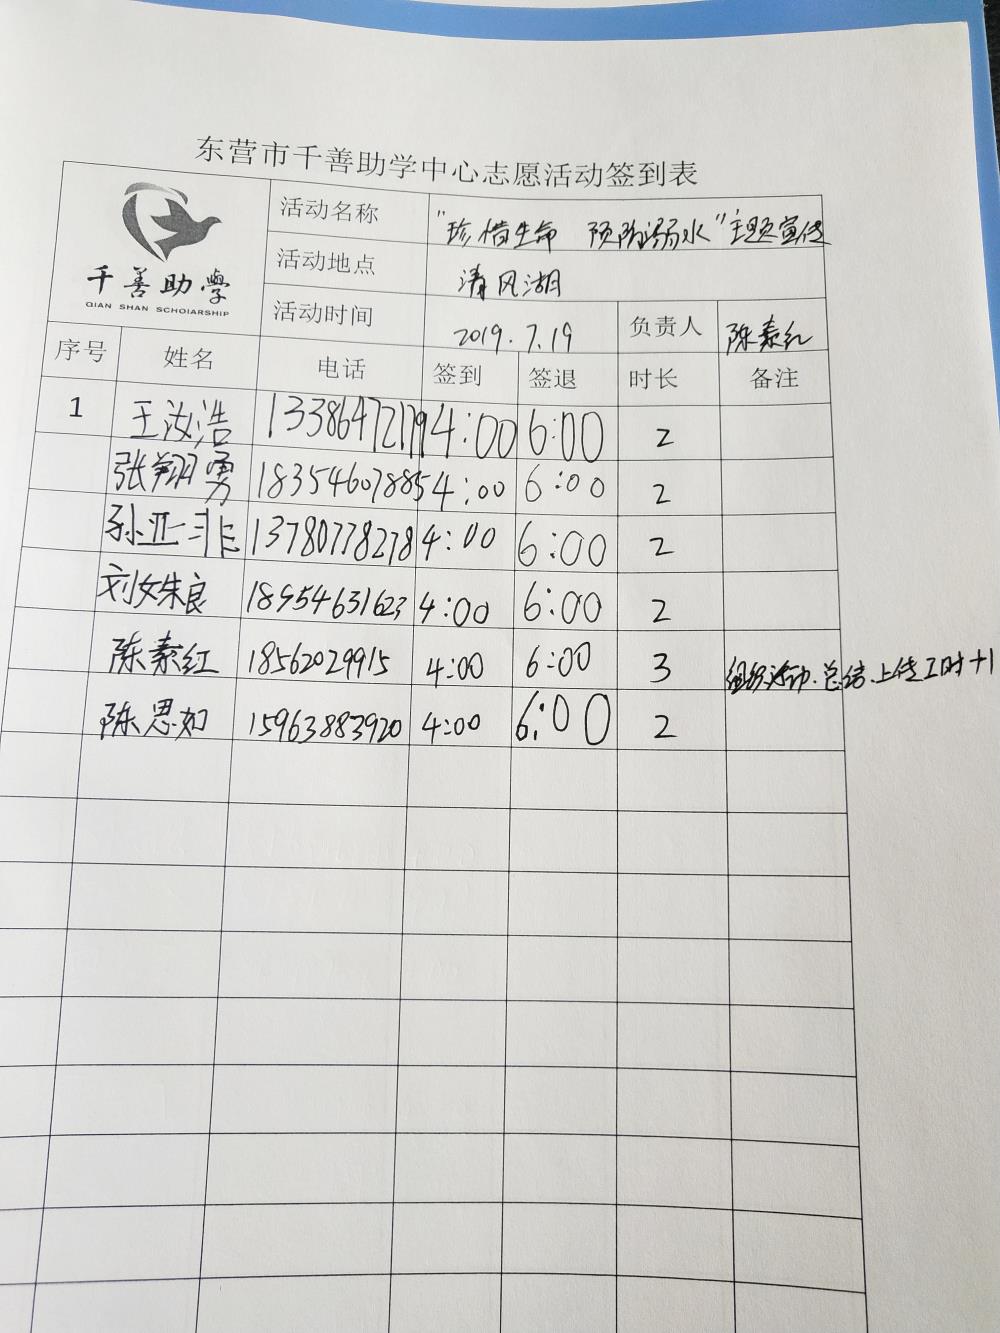 东营市千善助学中心志愿活动签到表
千善助學
QIAN SHAN SCHOIARSHIP
活动名称 "珍惜生命 预防溺水"主题宣传
活动地点 清风湖
活动时间 2019.7.19 负责人 陈素红
序号 姓名 电话 签到 签退 时长 备注
1 王汝浩 13386472179 4:00 6:00 2
张翔勇 18354607885 4:00 6:00 2
孙亚非 13780778278 4:00 6:00 2
刘姝良 18954631623 4:00 6:00 2
陈素红 18562029915 4:00 6:00 3 组织活动.总结.上传工时+1
陈思如 15963883920 4:00 6:00 2